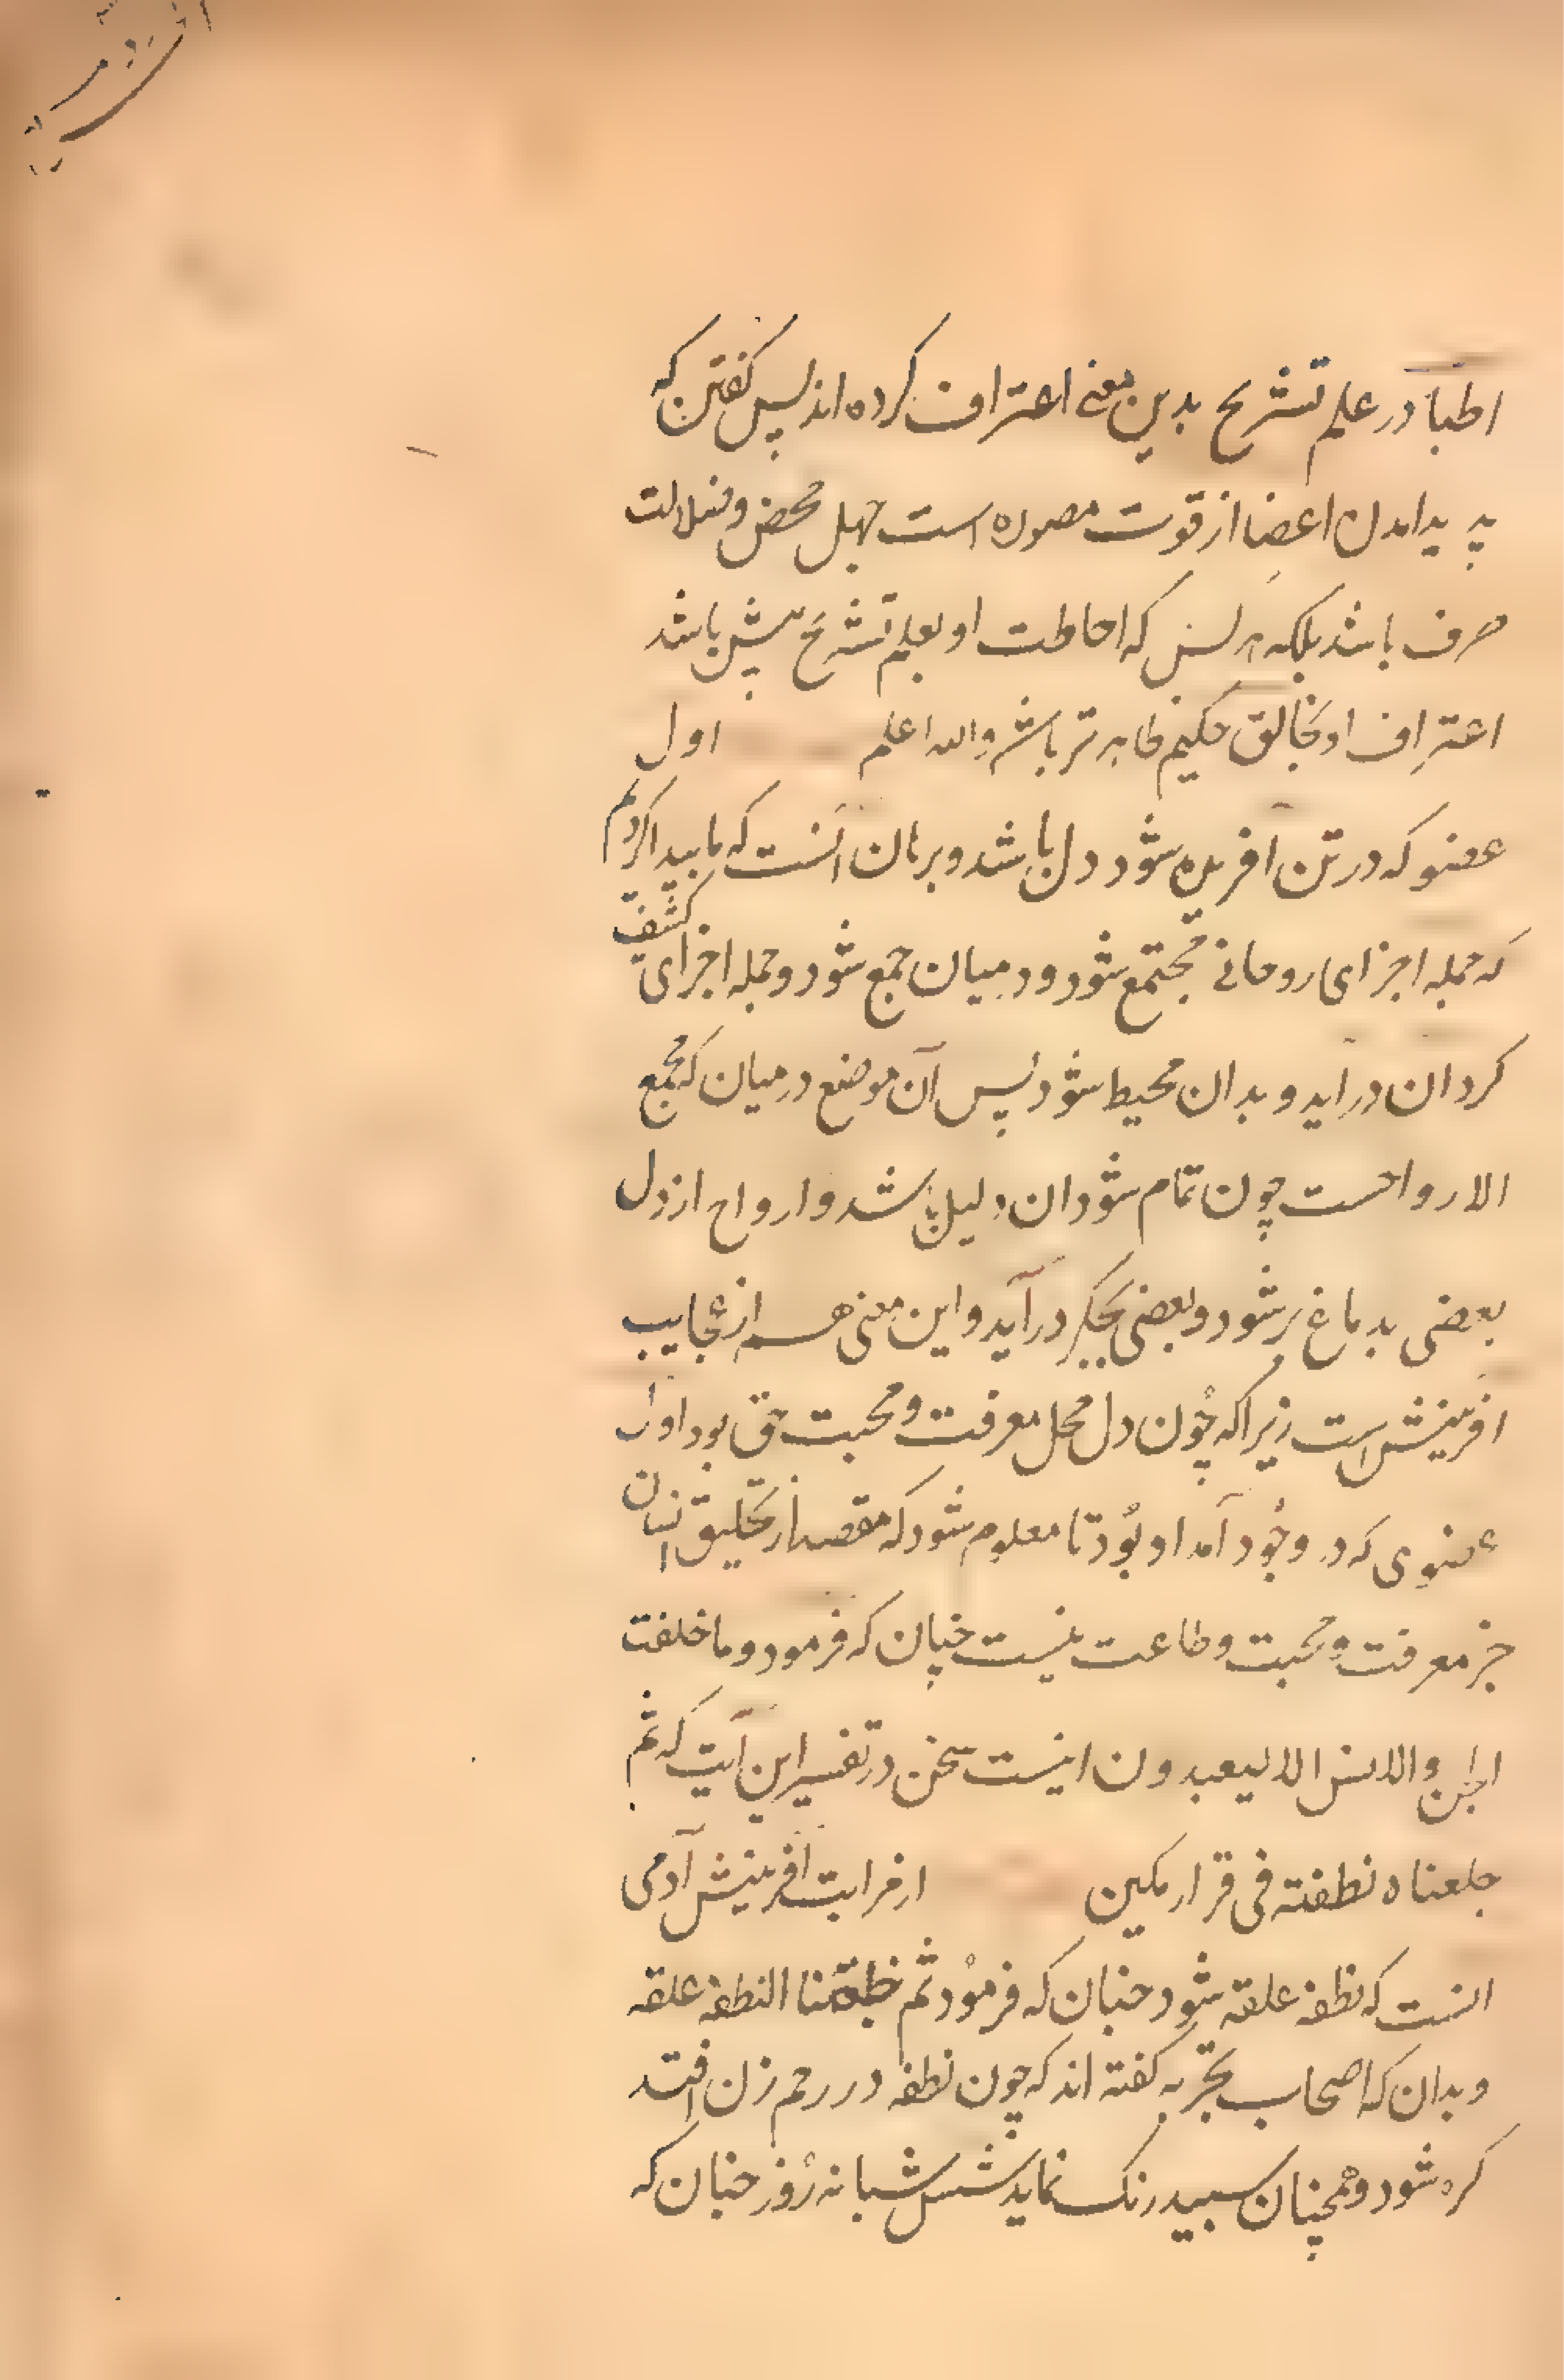 اطبا در علم تشریح بدین معنی اعتراف کرده اند پس کفتن که
پدید امدن اعضا از قوت مصوره است جهل محض و ضلالت
صرف باشد بلکه هر کس که احاطت او بعلم تشریح بیش باشد
اعتراف او بخالق حکیم ظاهر تر باشد والله اعلم اول
عضو که در تن افریده شود دل باشد و برهان انست که ما پیدا کردیم
که جمله اجزای روحانی مجتمع شود و در میان جمع شود و جمله اجزای کثیف
کرد ان در اید و بدان محیط شود پس آن موضع در میان که مجمع
الارواحست چون تمام شود ان دلیل باشد و ارواح از دل
بعضی بدماغ بر شود و بعضی بجکر در آید و این معنی هم از عجایب
افرینش است زیرا که چون دل محل معرفت و محبت حق بود اول
عضوی که در وجود آمد او بود تا معلوم شود که مقصد از تخلیق انسان
جز معرفت و محبت و طاعت نیست چنان که فرمود و ما خلقت
الجن والانس الا لیعبدون اینست سخن در تفسیر این آیت که ثم
جعلناه نطفته فی قرار مکین از مراتب افرینش آدمی
انست که نطفه علقه شود چنان که فرمود ثم خلقنا النطفه علقه
و بدان که اصحاب تجربه کفته اند که چون نطفه در رحم زن افتد
کره شود و همچنان سپید رنک نماید شش شبانه روز چنان که